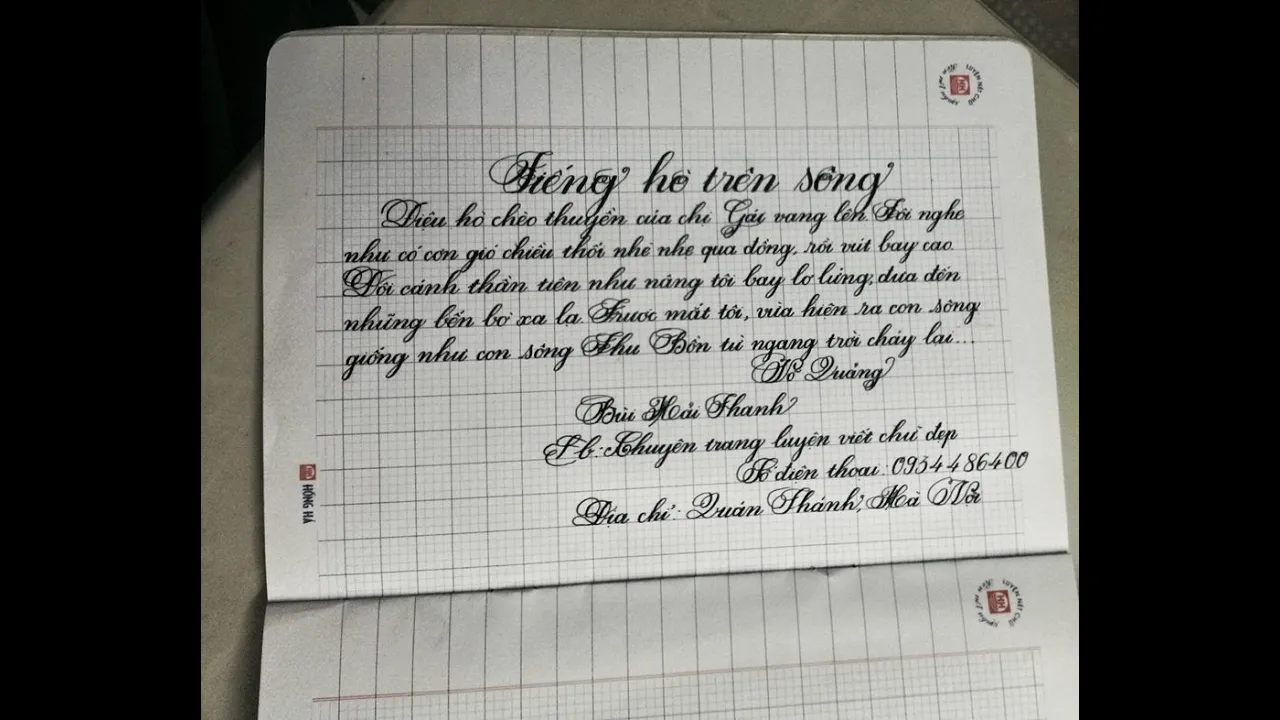 LUYỆN NÉT CHỮ
Rèn nết người
Tiếng hò trên sông
Điệu hò chèo thuyền của chị Gái vang lên. Tôi nghe
như có cơn gió chiều thổi nhè nhẹ qua đồng, rồi vút bay cao.
Đôi cánh thần tiên như nâng tôi bay lơ lửng, đưa đến
những bến bờ xa lạ. Trước mắt tôi, vừa hiện ra con sông
giống như con sông Thu Bồn từ ngang trời chảy lại...
Võ Quảng
Bùi Hải Thanh
Fb: Chuyên trang luyện viết chữ đẹp
Số điện thoại: 0934486400
Địa chỉ: Quán Thánh, Hà Nội
HỒNG HÀ
LUYỆN NÉT CHỮ
Rèn nết người